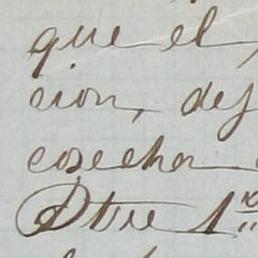 que el
cion, def
cosecha
Otre 1ro